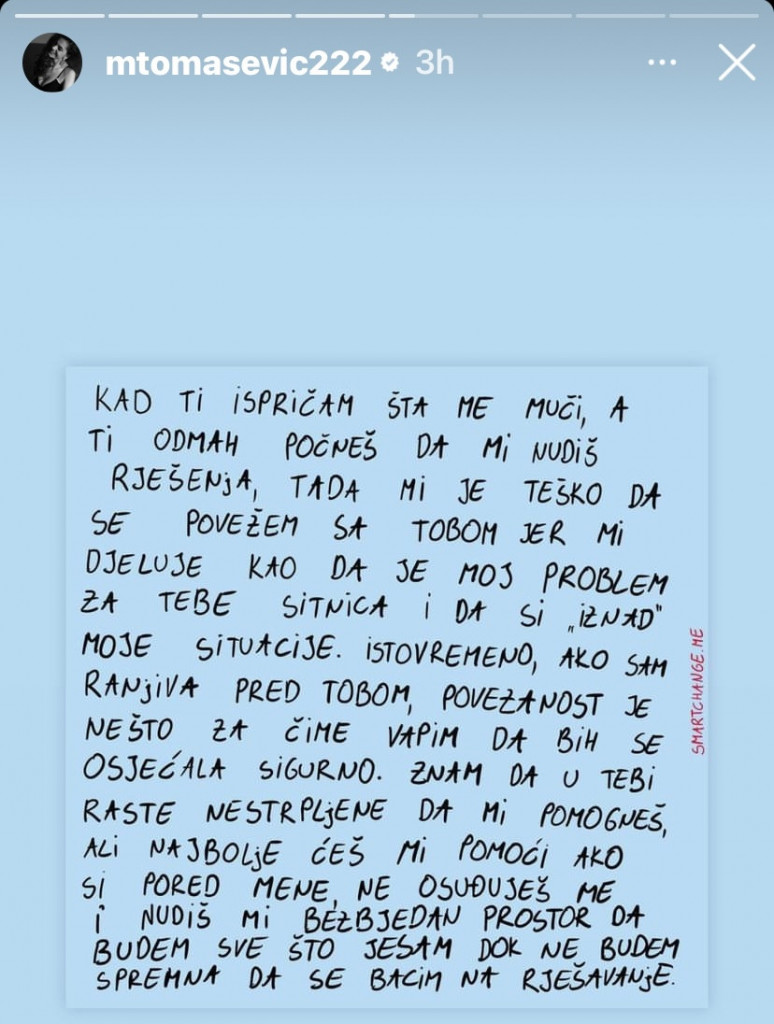 mtomasevic222 3h
KAD TI ISPRIČAM ŠTA ME MUČI, A
TI ODMAH POČNEŠ DA MI NUDIŠ
RJEŠENJA, TADA MI JE TEŠKO DA
SE POVEŽEM SA TOBOM JER MI
DJELUJE KAO DA JE MOJ PROBLEM
ZA TEBE SITNICA I DA SI „IZNAD"
MOJE SITUACIJE. ISTOVREMENO, AKO SAM
RANJIVA PRED TOBOM, POVEZANOST JE
NEŠTO ZA ČIME VAPIM DA BIH SE
OSJEĆALA SIGURNO. ZNAM DA U TEBI
RASTE NESTRPLJENE DA MI POMOGNEŠ,
ALI NAJBOLJE ĆEŠ MI POMOĆI AKO
SI PORED MENE, NE OSUĐUJEŠ ME
I NUDIŠ MI BEZBJEDAN PROSTOR DA
BUDEM SVE ŠTO JESAM DOK NE BUDEM
SPREMNA DA SE BACIM NA RJEŠAVANJE.
SMARTCHANGE.ME